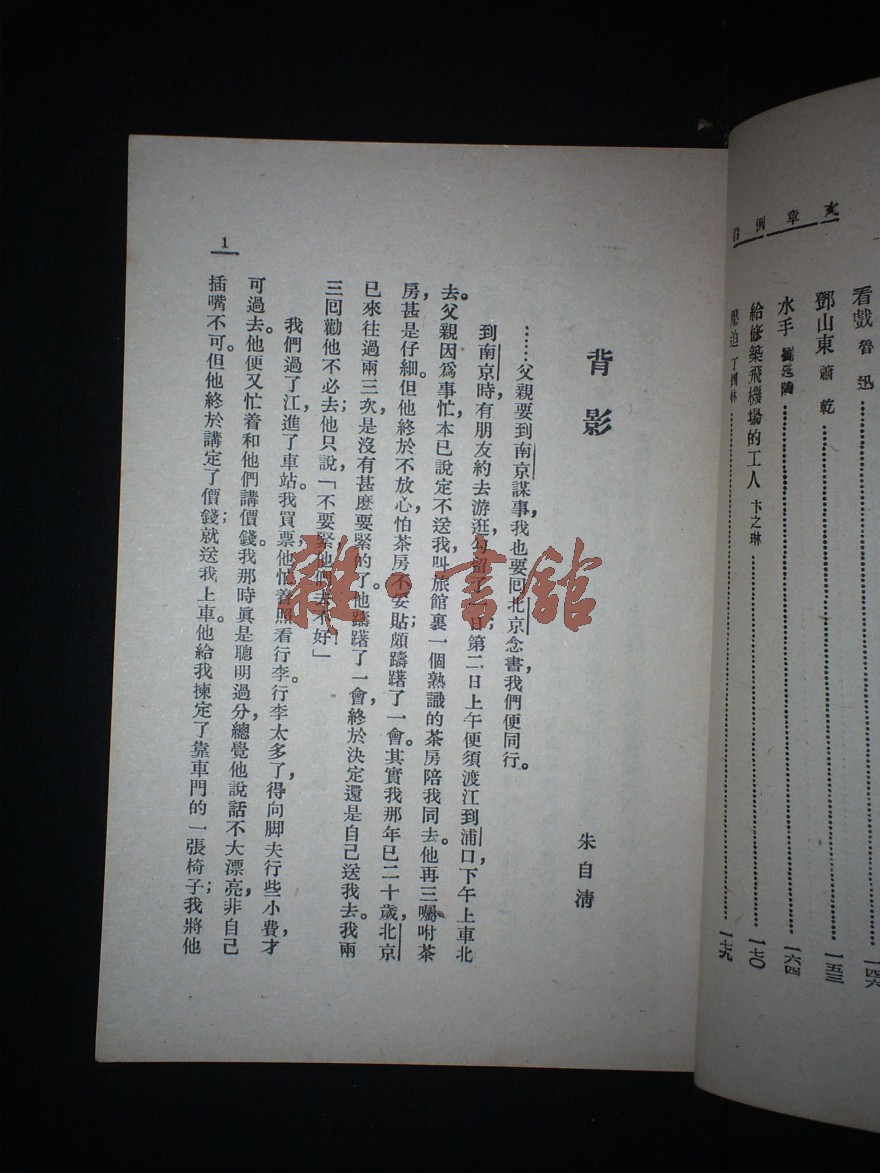 文章例話
看戲 魯迅………一四六
鄧山東 蕭乾………一五三
水手 劉延陵………一六四
給修築飛機場的工人 卞之琳………一七〇
壓迫 丁西林………一七九
背影
朱自清
……父親要到南京謀事，我也要囘北京念書，我們便同行。
到南京時，有朋友約去游逛，勾留了一日；第二日上午便須渡江到浦口，下午上車北
去。父親因爲事忙，本已說定不送我，叫旅館裏一個熟識的茶房陪我同去。他再三囑咐茶
房，甚是仔細。但他終於不放心，怕茶房不妥貼；頗躊躇了一會。其實我那年已二十歲，北京
已來往過兩三次，是沒有甚麼要緊的了。他躊躇了一會，終於決定還是自己送我去。我兩
三囘勸他不必去；他只說，「不要緊，他們去不好！」
我們過了江，進了車站。我買票，他忙着照看行李。行李太多了，得向脚夫行些小費，才
可過去。他便又忙着和他們講價錢。我那時眞是聰明過分，總覺他說話不大漂亮，非自己
插嘴不可。但他終於講定了價錢；就送我上車。他給我揀定了靠車門的一張椅子；我將他
1
雜·書館